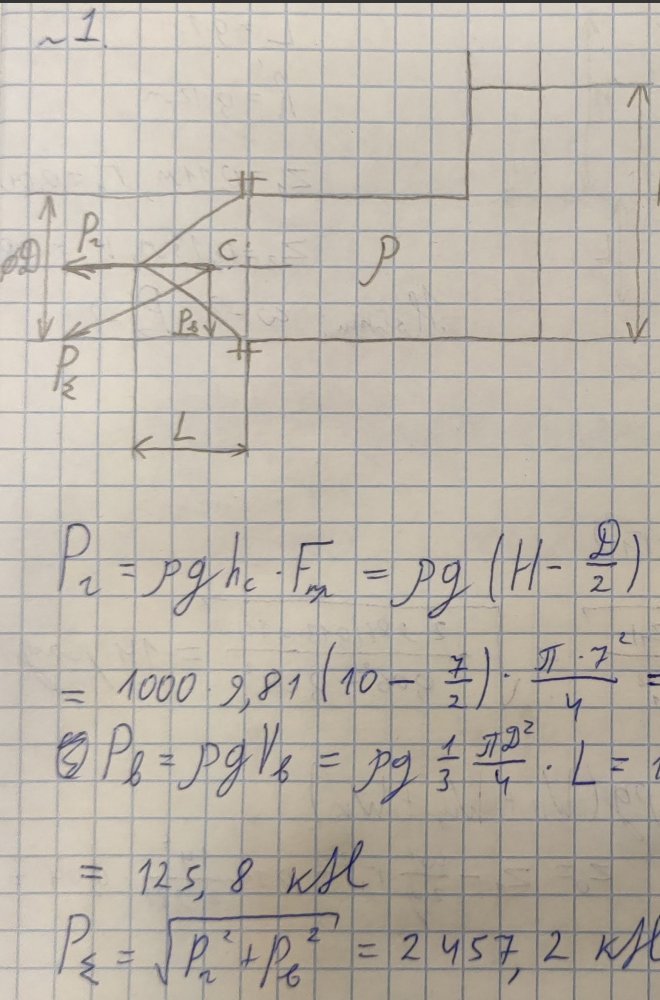 ~1.
Pг
C
D
ρ
Pв
PΣ
L
Pг = ρg hc · Fпл = ρg (H - D/2)
= 1000 · 9,81 (10 - 7/2) · π · 7²/4 =
Pв = ρgVв = ρg 1/3 πD²/4 · L = 1
= 125,8 кН
PΣ = √(Pг² + Pв²) = 2 457,2 кН